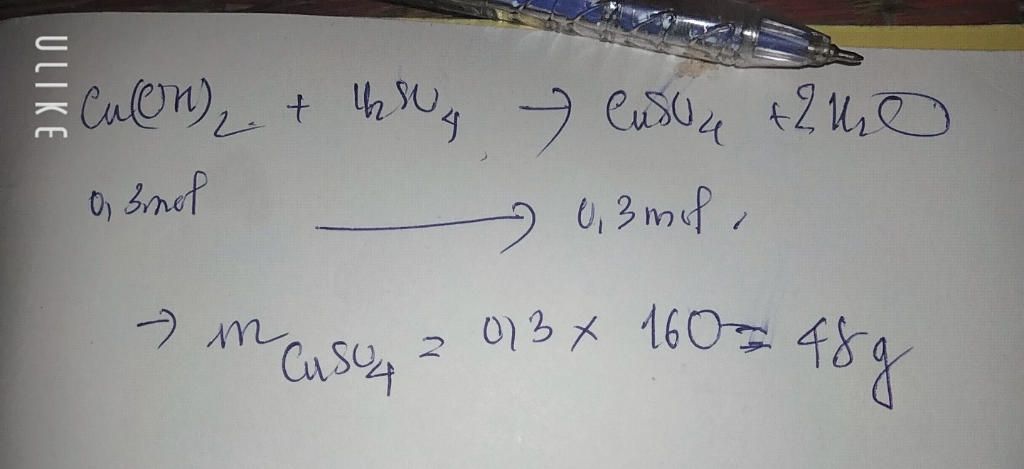 ULIKE
Cu(OH)₂ + H₂SO₄ → CuSO₄ + 2H₂O
0,3mol → 0,3mol
→ m CuSO₄ = 0,3 × 160 = 48g